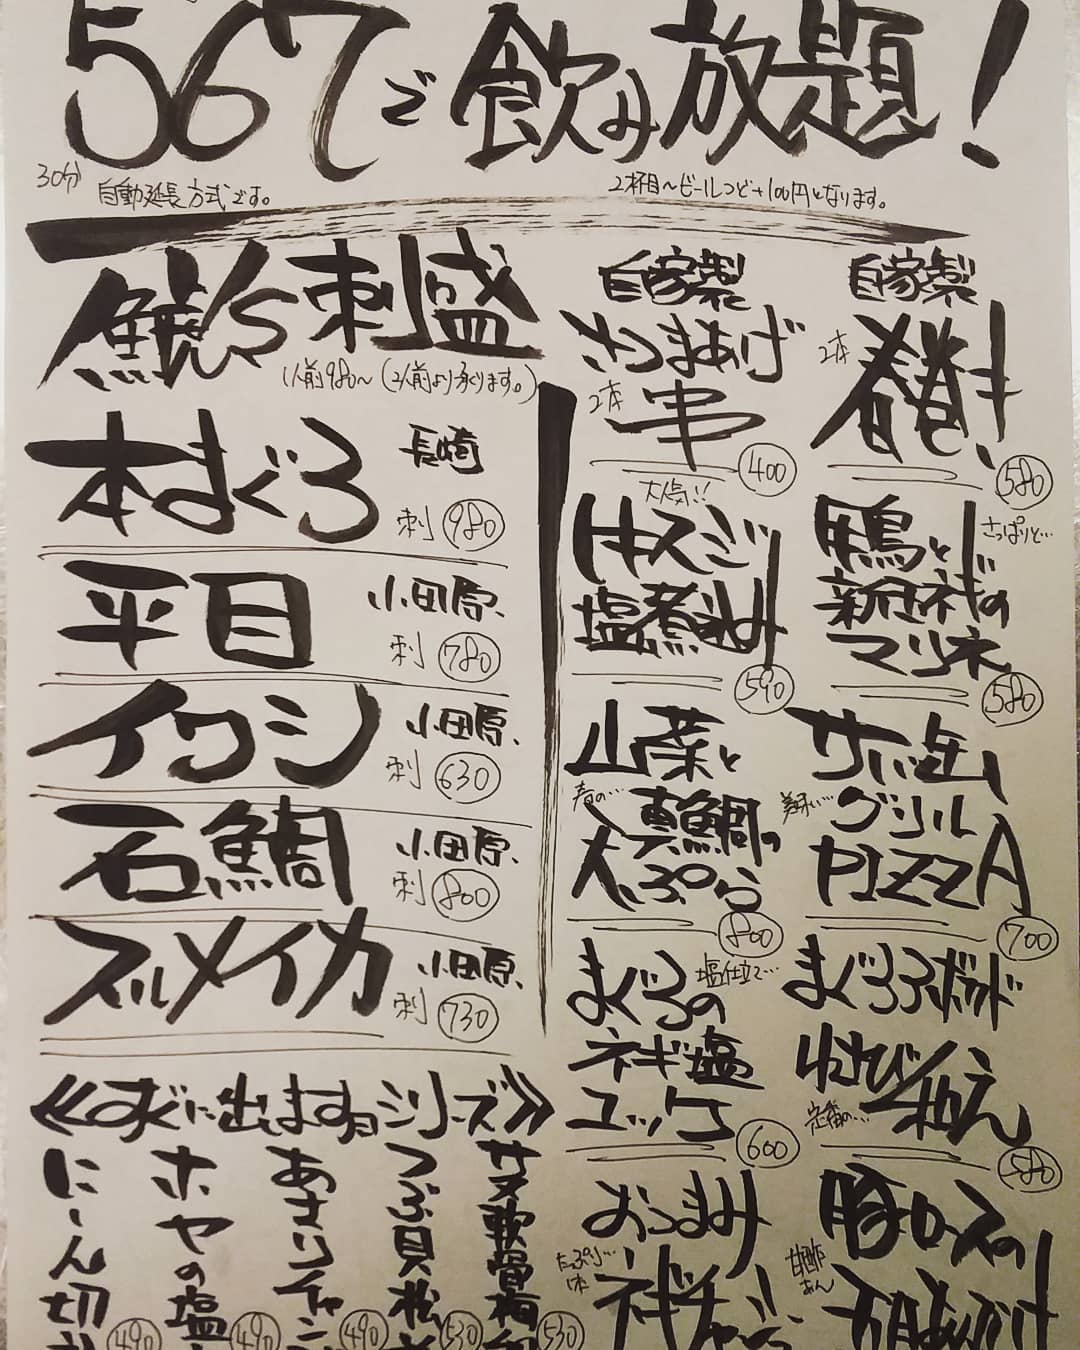 567で飲み放題!
30分 自動延長方式です。
2杯目〜ビールつど+100円となります。
刺盛
1人前980〜(2人前より承ります。)
本まぐろ 長崎 刺 980
平目 小田原 刺 780
イワシ 小田原 刺 630
石鯛 小田原 刺 800
スルメイカ 小田原 刺 730
自家製
さつまあげ
2本 串
400
自家製
2本 春巻き
580
大人気!!
牛スジ
塩煮込み
590
さっぱりと…
鴨と
新玉ネギの
マリネ
580
山菜と
春の… 真鯛の
天ぷら
800
サバ缶
美味い… グリル
PIZZA
700
まぐろの 塩仕立て…
ネギ塩
ユッケ
600
まぐろアボカド
わさび和え
定番の…
580
おつまみ
たっぷり…
ネギチャーシュー
豚ロースの
甘酢あん
《すぐに出ますョシリーズ》
サメ軟骨梅
530
つぶ貝松
530
あさりチャン
490
ホヤの塩
490
にしん切
490